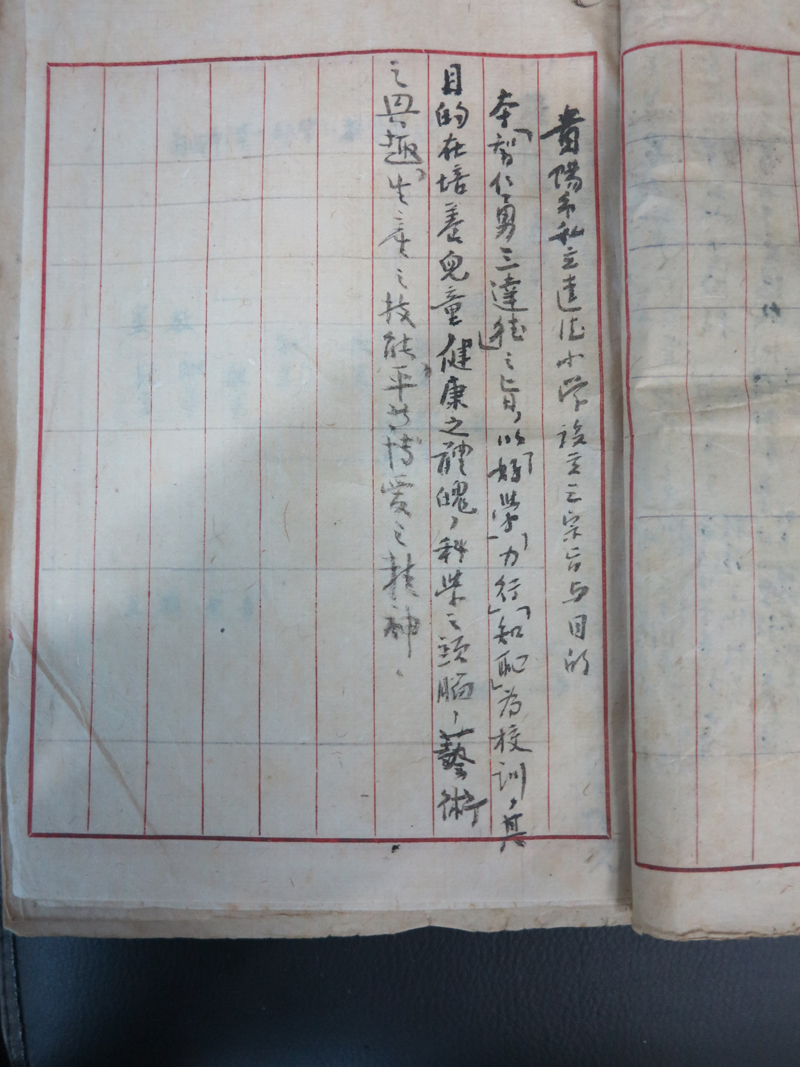 貴陽市私立達德小学設立之宗旨与目的
本「智仁勇三達德」之旨，以「好学」「力行」「知恥」為校训，其
目的在培養兒童健康之體魄，科学之頭腦，藝術
之興趣，生産之技能，平等博愛之精神、